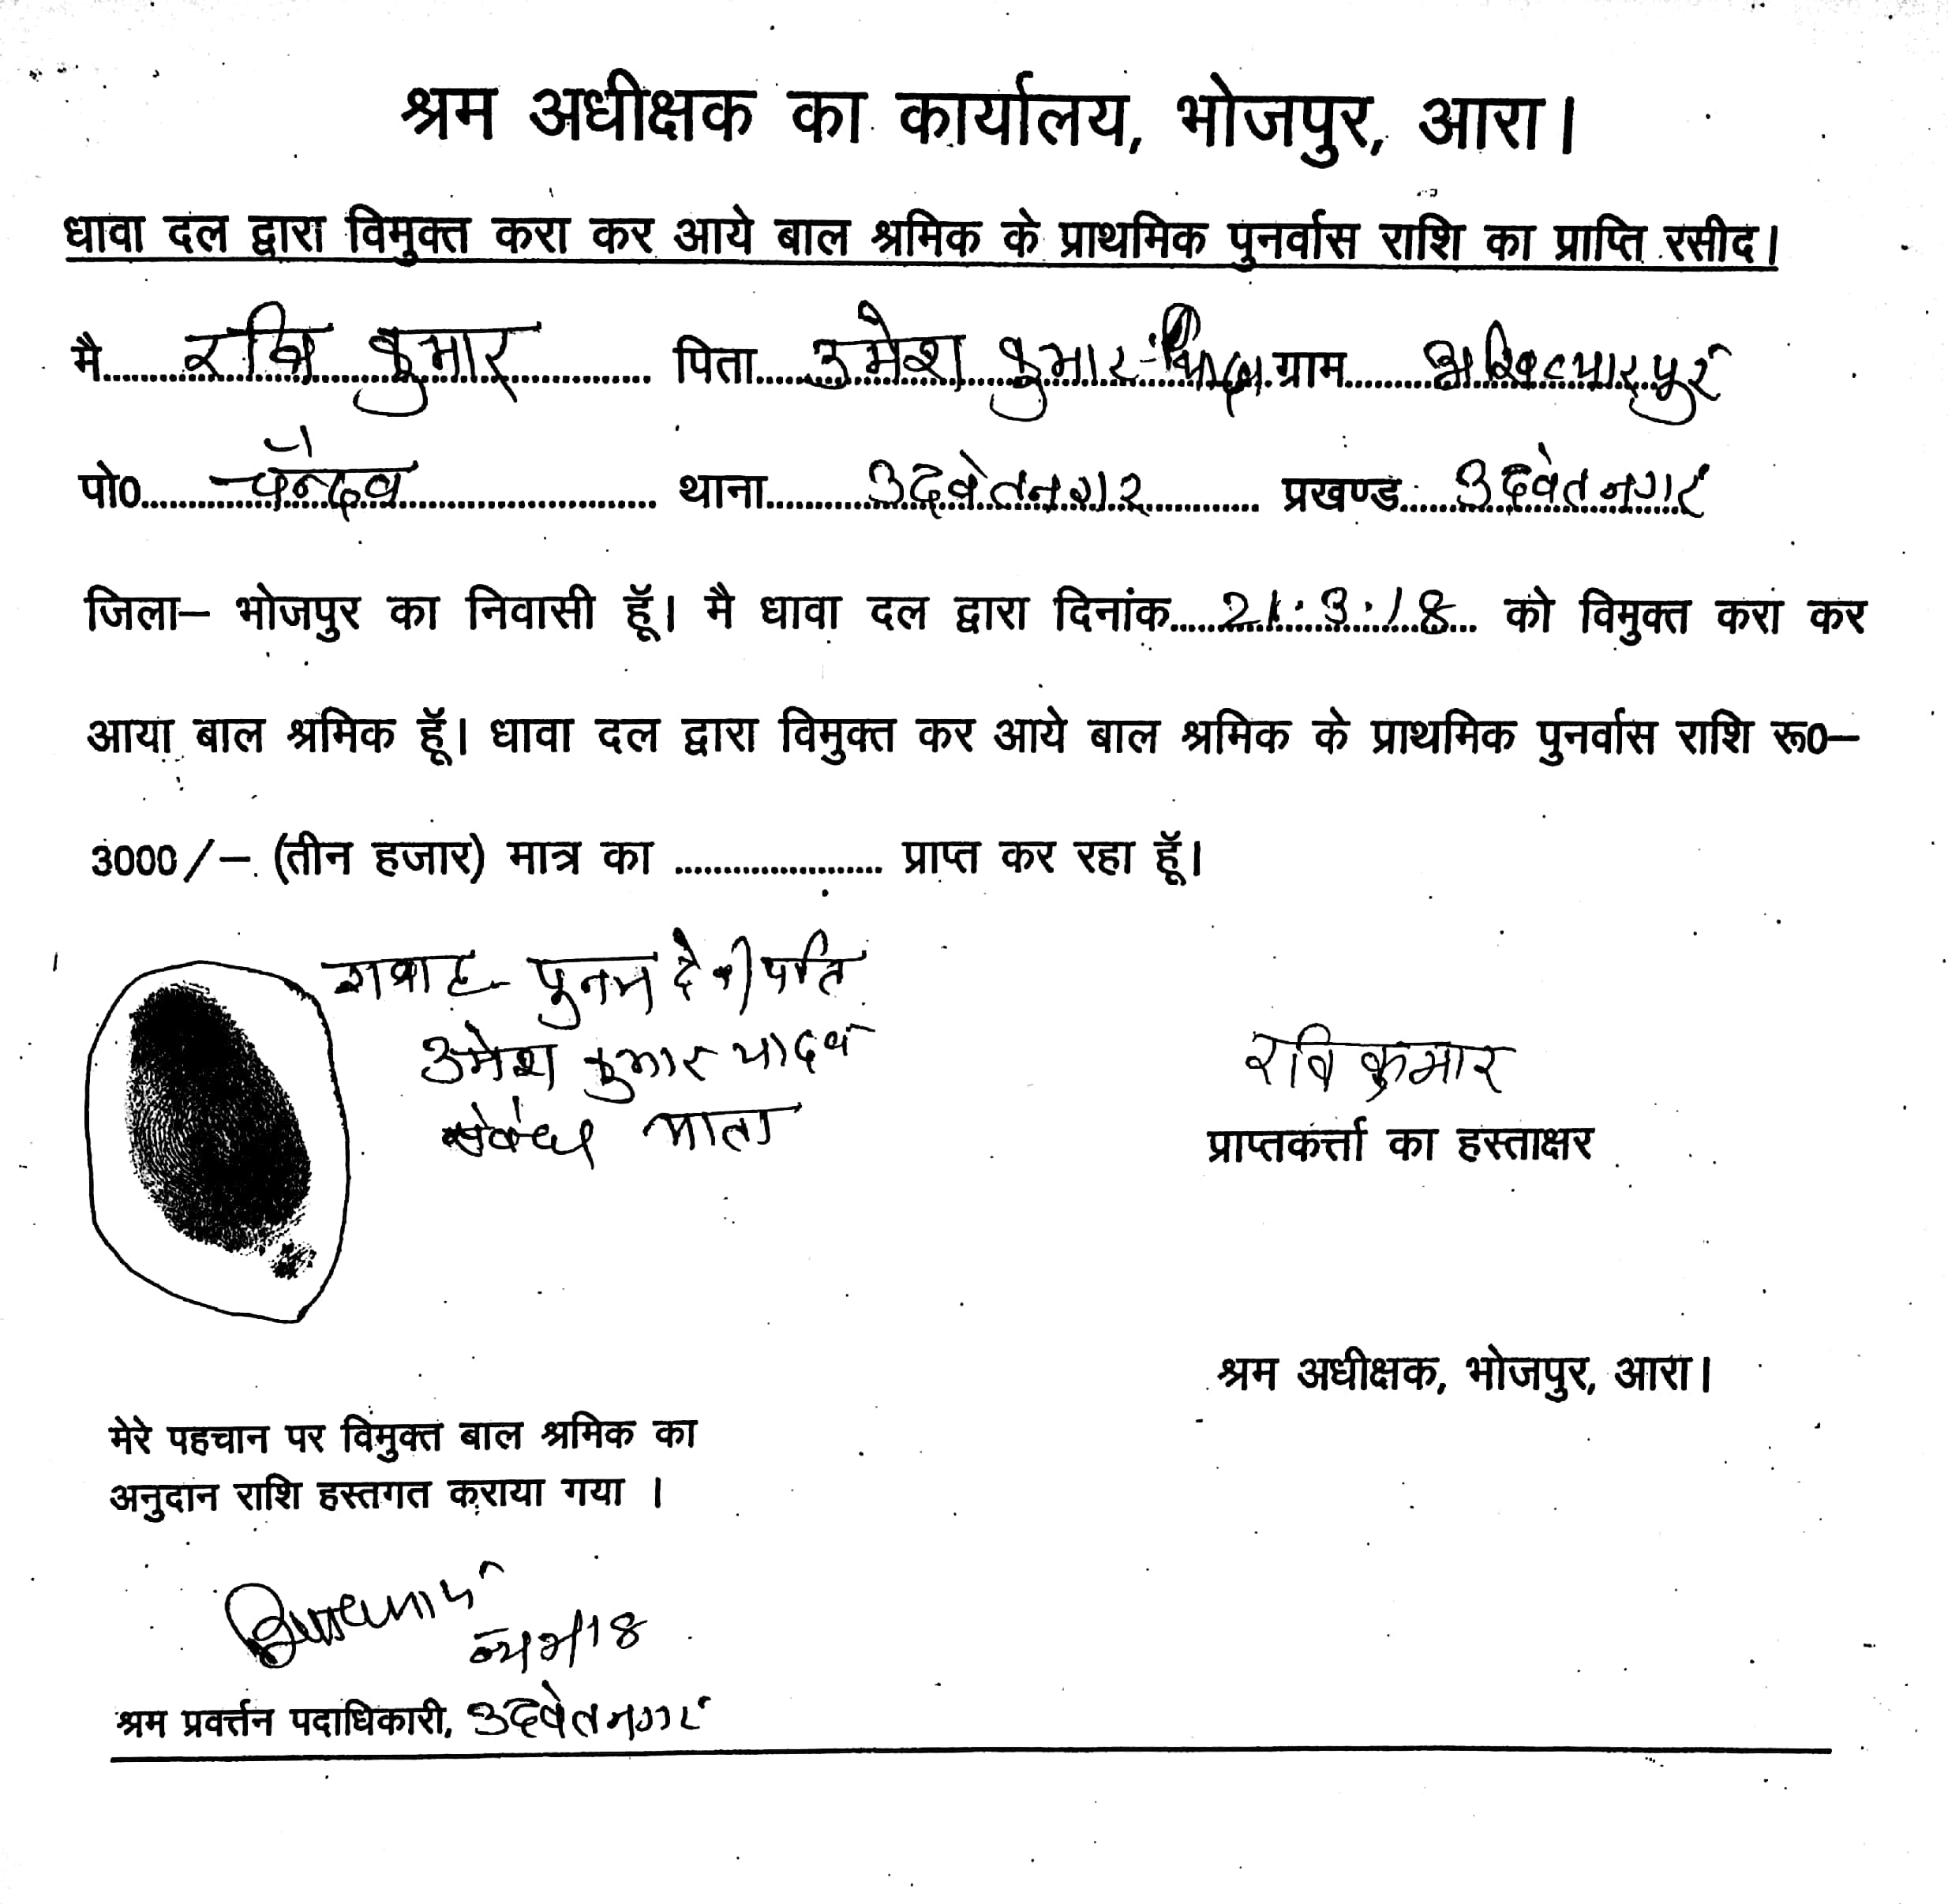 श्रम अधीक्षक का कार्यालय, भोजपुर, आरा।
धावा दल द्वारा विमुक्त करा कर आये बाल श्रमिक के प्राथमिक पुनर्वास राशि का प्राप्ति रसीद।
मै.......रवि कुमार....... पिता.......उमेश कुमार.......ग्राम.......
पो0....... थाना.......उदवंतनगर....... प्रखण्ड.......उदवंतनगर
जिला– भोजपुर का निवासी हूँ। मै धावा दल द्वारा दिनांक.......21.3.18... को विमुक्त करा कर
आया बाल श्रमिक हूँ। धावा दल द्वारा विमुक्त कर आये बाल श्रमिक के प्राथमिक पुनर्वास राशि रू0–
3000/–. (तीन हजार) मात्र का ..................... प्राप्त कर रहा हूँ।
गवाह- पुनम देवी पति
उमेश कुमार यादव
संबंध माता
रवि कुमार
प्राप्तकर्त्ता का हस्ताक्षर
श्रम अधीक्षक, भोजपुर, आरा।
मेरे पहचान पर विमुक्त बाल श्रमिक का
अनुदान राशि हस्तगत कराया गया ।
श्रम प्रवर्त्तन पदाधिकारी, उदवंतनगर